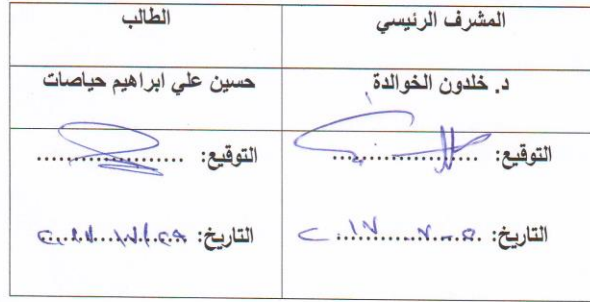 المشرف الرئيسي
الطالب
د. خلدون الخوالدة
حسين علي ابراهيم حياصات
التوقيع:
التوقيع:
التاريخ:
التاريخ: